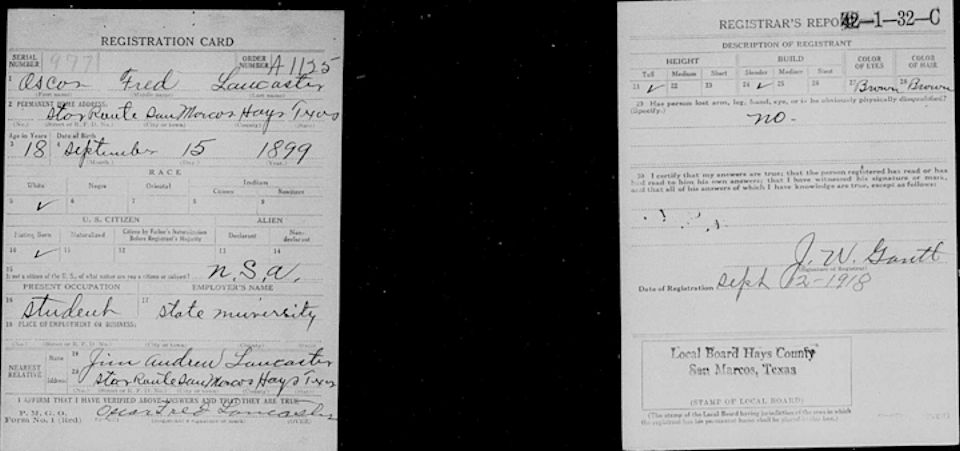 REGISTRATION CARD
SERIAL NUMBER 997
ORDER NUMBER A1125
1 Oscar Fred Lancaster
(First name) (Middle name) (Last name)
2 PERMANENT HOME ADDRESS:
Star Route San Marcos Hays Texas
(Street or R. F. D. No.) (City or town) (County) (State)
Age in Years Date of Birth
3 18 4 September 15 1899
(Month.) (Day.) (Year.)
RACE
White Negro Oriental Indian
Citizen Noncitizen
5 ✓ 6 7 8 9
U. S. CITIZEN ALIEN
Native Born Naturalized Citizen by Father's Naturalization Before Registrant's Majority Declarant Non-declarant
10 ✓ 11 12 13 14
15
If not a citizen of the U. S., of what nation are you a citizen or subject?
PRESENT OCCUPATION EMPLOYER'S NAME
16 student 17 State university
18 PLACE OF EMPLOYMENT OR BUSINESS:
(No.) (Street or R. F. D. No.) (City or town) (County) (State)
NEAREST RELATIVE
Name 19 Jim Andrew Lancaster
Address 20 Star Route San Marcos Hays Texas
(No.) (Street or R. F. D. No.) (City or town) (County) (State)
I AFFIRM THAT I HAVE VERIFIED ABOVE ANSWERS AND THAT THEY ARE TRUE
P. M. G. O.
Form No. 1 (Red) Oscar Fred Lancaster
(Registrant's signature or mark) (OVER)
REGISTRAR'S REPORT 42-1-32-C
DESCRIPTION OF REGISTRANT
HEIGHT BUILD COLOR OF EYES COLOR OF HAIR
Tall Medium Short Slender Medium Stout
21 ✓ 22 23 24 ✓ 25 26 27 Brown 28 Brown
29 Has person lost arm, leg, hand, eye, or is he obviously physically disqualified?
(Specify.)
no-
30 I certify that my answers are true; that the person registered has read or has
had read to him his own answers; that I have witnessed his signature or mark,
and that all of his answers of which I have knowledge are true, except as follows:
J. W. Gantt
(Signature of Registrar)
Date of Registration Sept 12-1918
Local Board Hays County
San Marcos, Texas
(STAMP OF LOCAL BOARD)
(The stamp of the Local Board having jurisdiction of the area in which
the registrant has his permanent home shall be placed in this box.)